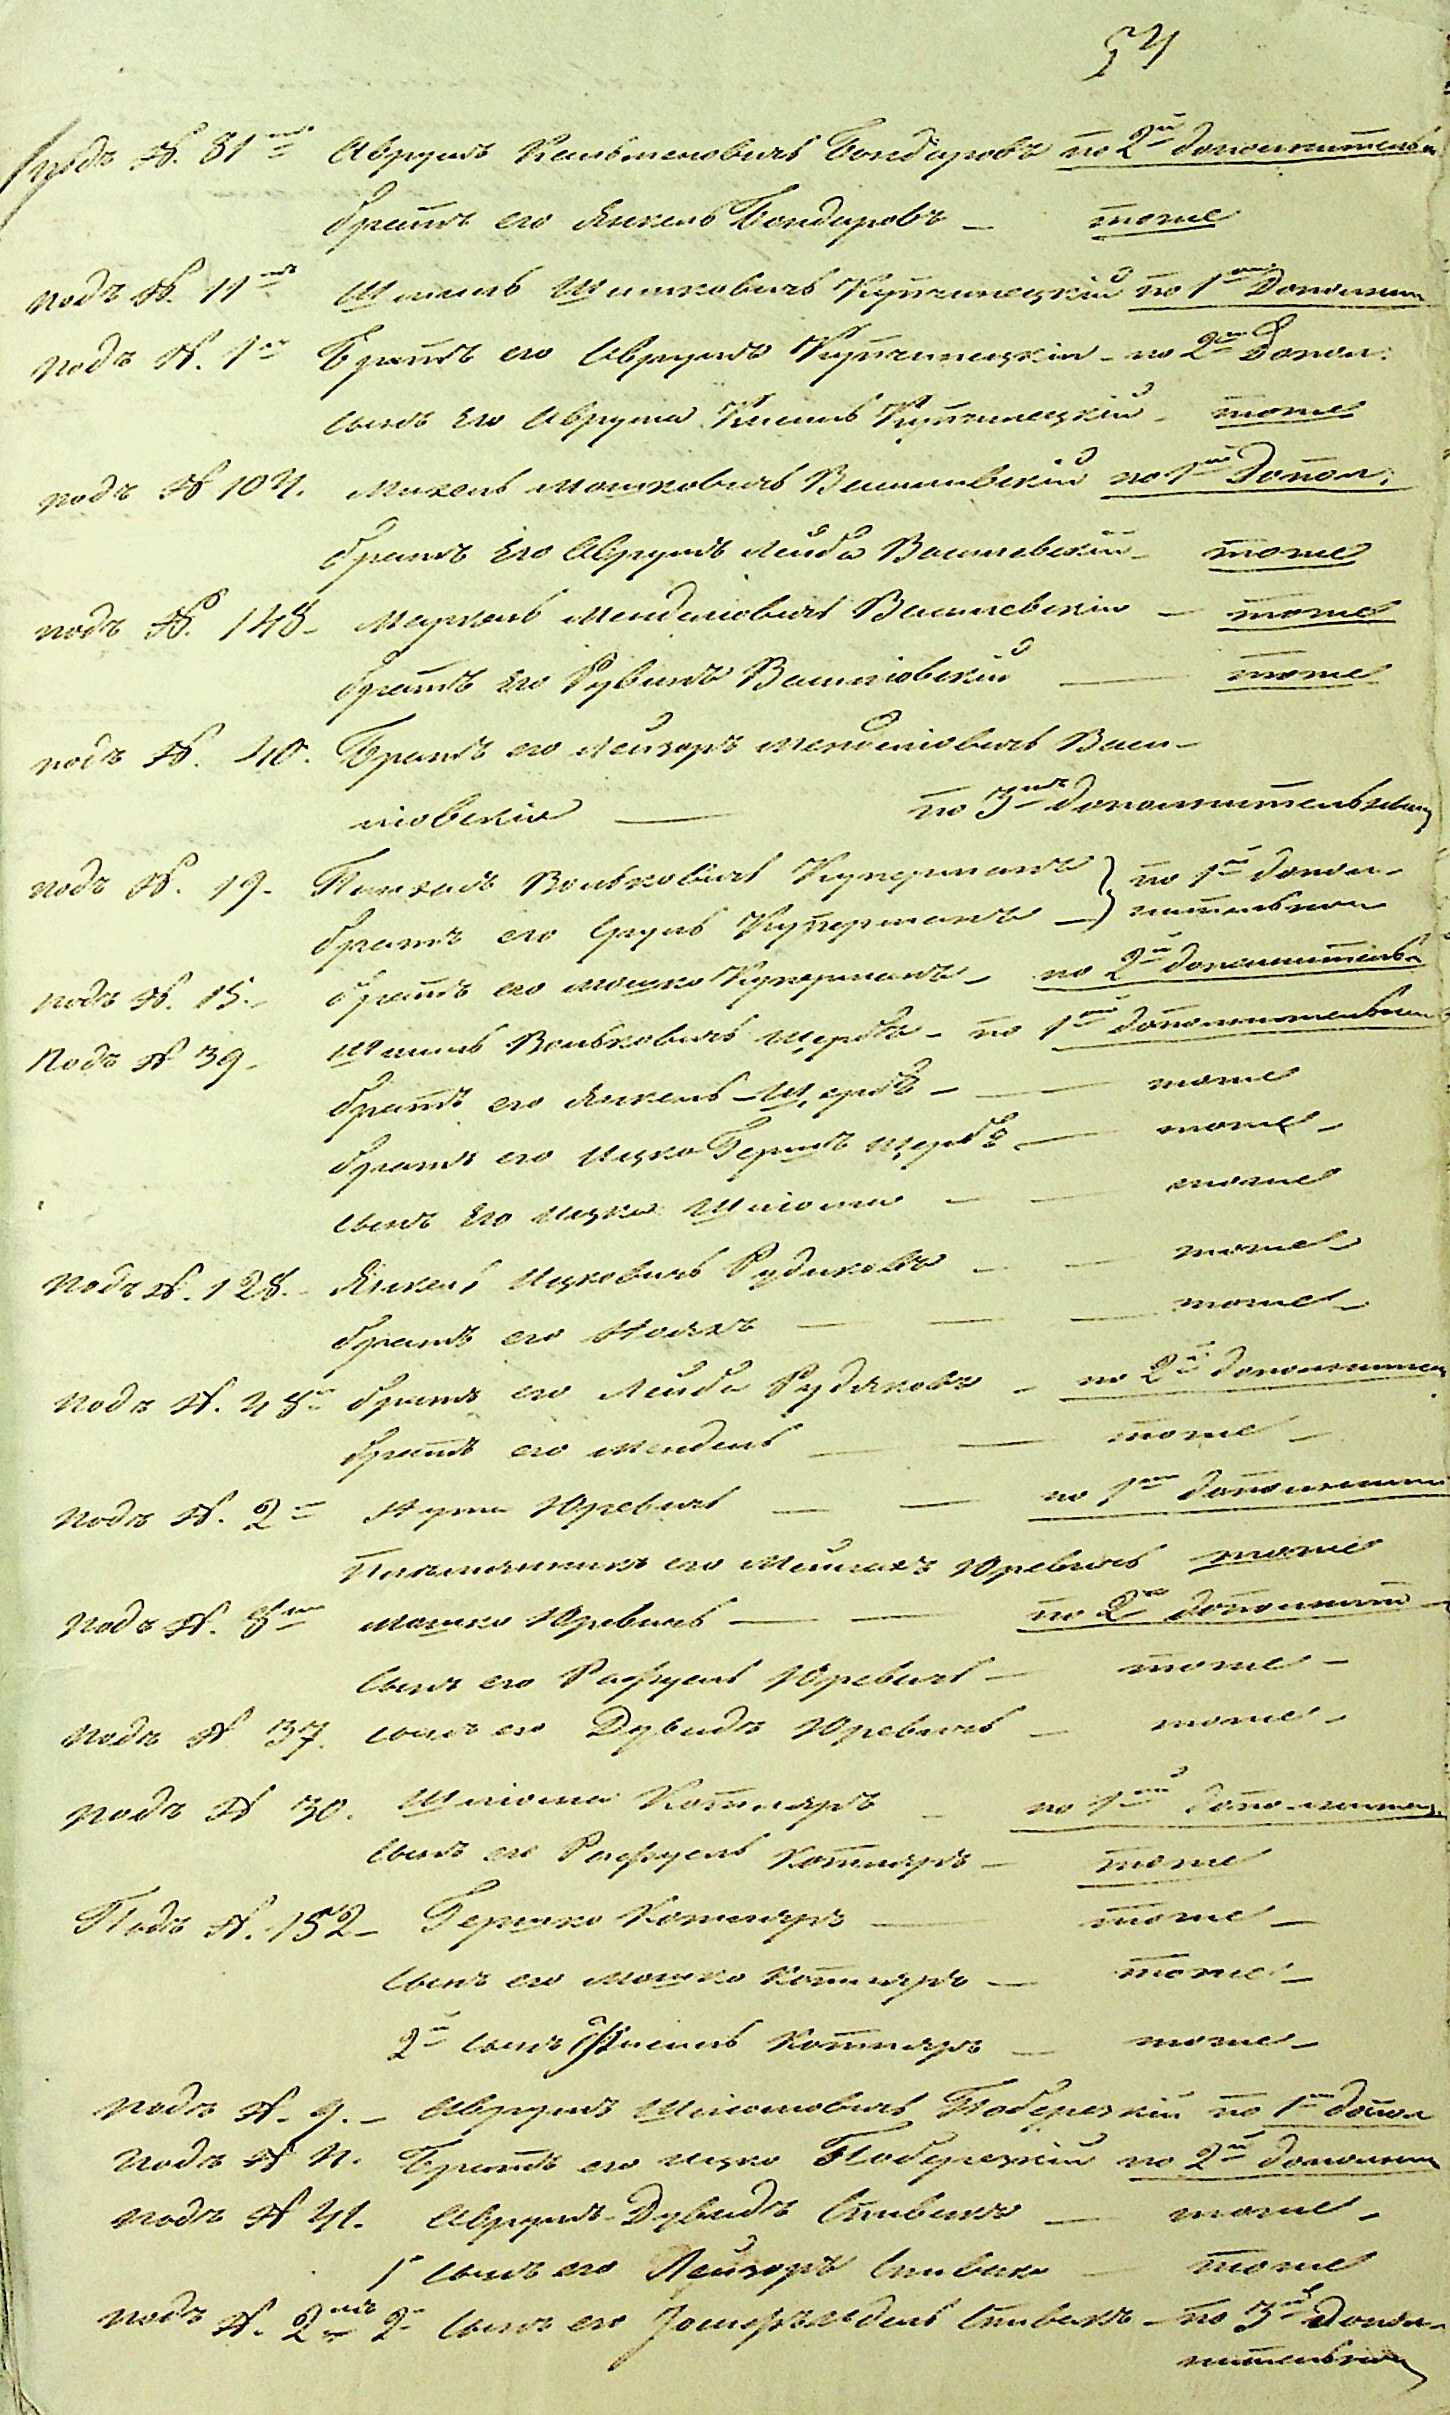 54
подъ №. 81мъ Аврумъ Кальмановичъ Бондаровъ по 2й дополнительн
братъ его Янкель Бондаровъ — тоже
подъ №. 11мъ Шмиль Шимковичъ Купчинецкій по 1й дополни
подъ №. 1м Братъ его Аврумъ Купчинецкій — по 2й допол:
сынъ его Аврума Кисиль Купчинецкій — тоже
подъ № 104. Михель Мошковичъ Василевскій по 1й допол:
братъ его Аврумъ Лейба Василевскій — тоже
подъ №. 148 — Маркель Менделіовичъ Василевскій — тоже
братъ его Рувинъ Василіовскій — тоже
подъ №. 40. Братъ его Лейзоръ Менделіовичъ Васи-
ліовскій — по 3мъ дополнительному
подъ №. 19. Пинхасъ Вольковичъ Куперманъ } по 1й допол-
братъ его Сруль Куперманъ — } нительной
подъ №. 15. — братъ его Мошко Куперманъ — по 2й дополнительн
Подъ № 39 — Шмиль Вольковичъ Щербъ — по 1й дополнительной
братъ его Янкель Щербъ — — тоже
братъ его Ицко Бершъ Щербъ — тоже —
сынъ его Ицка Шліома — — тоже
подъ №. 128. — Янкель Ицковичъ Рудяковъ — — тоже —
братъ его Ноахъ — — — тоже —
подъ №. 48м братъ его Лейба Рудяковъ — по 2й дополнител
братъ его Мендель — — тоже —
подъ №. 2м Нута Юревичъ — — по 1й дополнит
Племянникъ его Мейлахъ Юревичъ тоже
подъ №. 8мъ Мошко Юревичъ — — по 2й дополнит —
сынъ его Рафуель Юревичъ — тоже —
подъ № 37. сынъ его Дувидъ Юревичъ — тоже —
подъ № 30. Шліома Котляръ — по 1й дополнител.
сынъ его Рафуель Котляръ — тоже
Подъ №. 152 — Гершко Котляръ — тоже —
сынъ его Мошко Котляръ — тоже —
2й сынъ Фишель Котляръ — тоже —
подъ №. 9. — Аврумъ Шліомовичъ Поберезкій по 1й допол
подъ № 4. Братъ его Ицко Поберезкій по 2й дополнит
подъ № 41. Аврумъ-Дувидъ Спивакъ — тоже —
1й сынъ его Лейзоръ Спивакъ — тоже
подъ №. 2мъ 2й сынъ его Спивакъ — по 3й допол-
нительной